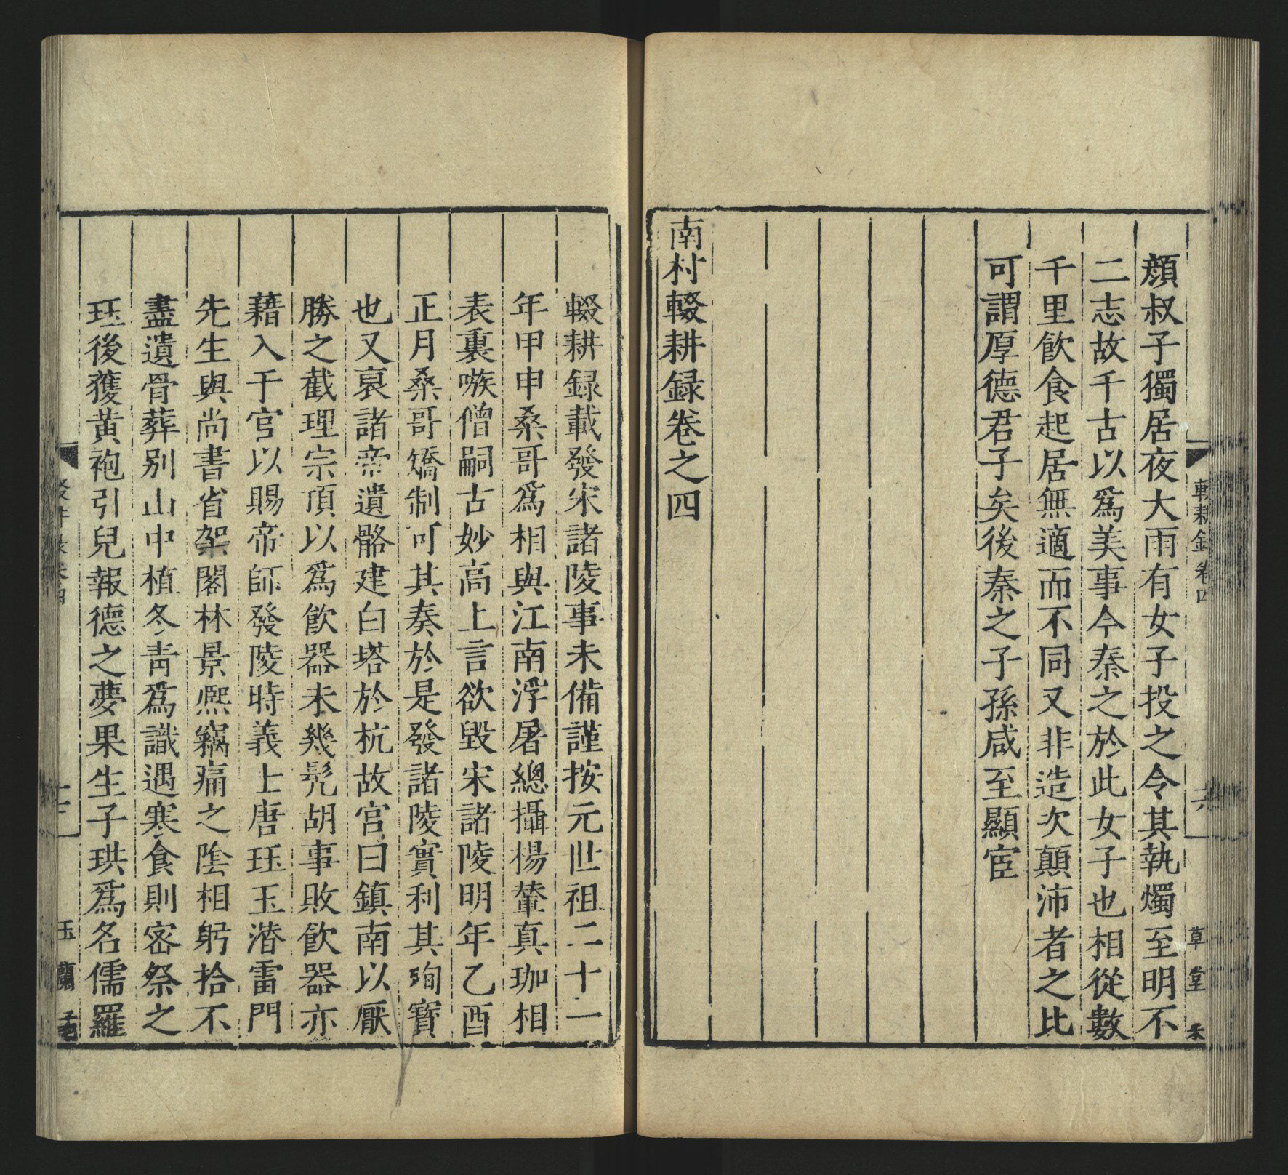 顔叔子獨居夜大雨有女子投之令其執燭至明不
二志故千古以爲美事今秦之於此女子也相從數
千里飮食起居無適而不同又非造次顛沛者之比
可謂厚德君子矣後秦之子孫咸至顯宦
南村輟耕録卷之四
輟耕録載發宋諸陵事未備謹按元世祖二十一
年甲申桑哥爲相與江南浮屠總攝楊輦真珈相
表裏嗾僧嗣古妙高上言欲毀宋諸陵明年乙酉
正月桑哥矯制可其奏於是發諸陵實利其殉寳
也又裒諸帝遺骼建白塔於杭故宫曰鎮南以厭
勝之截理宗頂以爲飮器未幾髠胡事敗飮器亦
藉入于官以賜帝師發陵時義士唐珏玉潜雷門
先生與尚書省架閣林景熈竊痛之隂相躬拾不
盡遺骨葬别山中植冬青爲識遇寒食則密祭之
珏後獲黃袍引兒報德之夢果生子珙爲名儒羅
輟耕録卷四
草堂
玉蘭